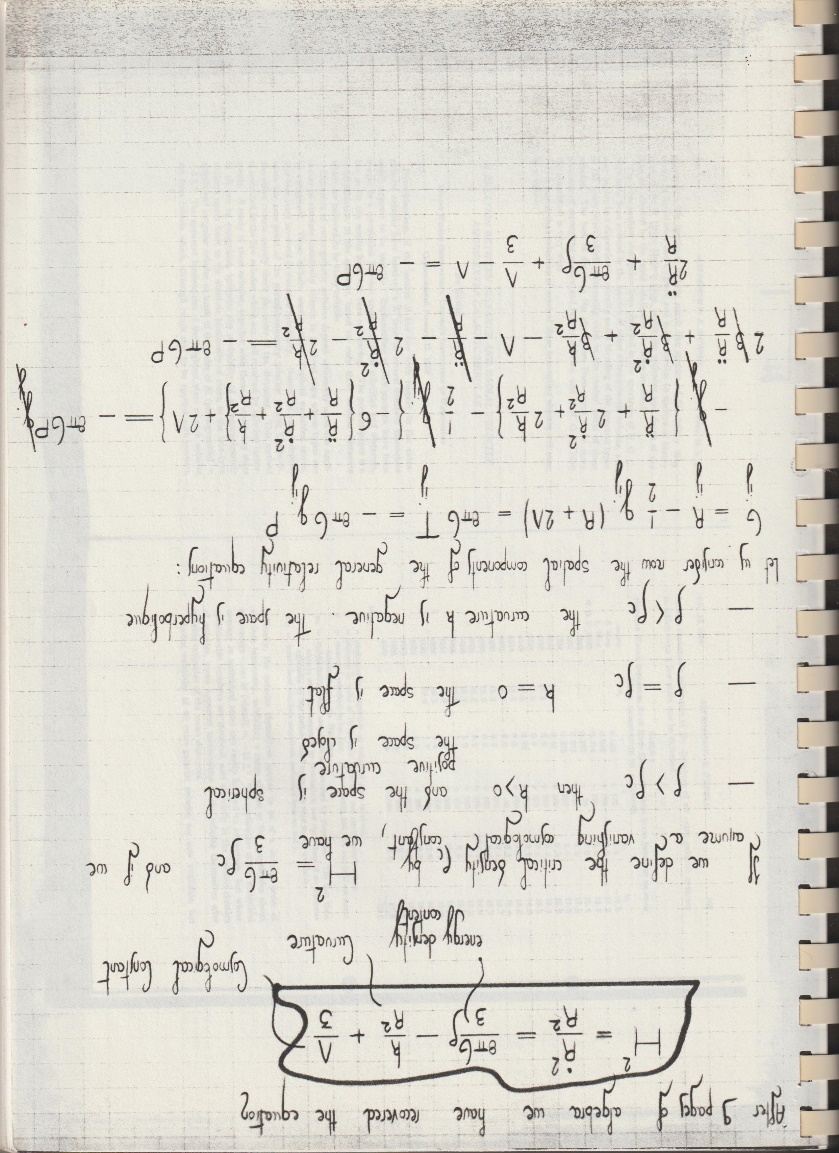 After 9 pages of algebra we have recovered the equation
H² = Ṙ²/R² = 8πG/3 ρ − k/R² + Λ/3
energy density content
Curvature
Cosmological Constant
If we define the critical density ρc by H² = 8πG/3 ρc and if we
assume a vanishing cosmological constant, we have
— ρ > ρc then k>0 and the space is spherical
positive curvature
the space is closed
— ρ = ρc k = 0 the space is flat
— ρ < ρc the curvature k is negative. the space is hyperbolique
let us consider now the spatial components of the general relativity equations:
G_ij = R_ij − 1/2 g_ij (R + 2Λ) = 8πG T_ij = − 8πG g_ij P
− g_ij {R̈/R + 2 Ṙ²/R² + 2 k/R²} − 1/2 g_ij {−6{R̈/R + Ṙ²/R² + k/R²} + 2Λ} = − 8πGP g_ij
2 3 R̈/R + 3 Ṙ²/R² + 3 k/R² − Λ − R̈/R − 2 Ṙ²/R² − 2 k/R² = − 8πGP
2R̈/R + 8πG/3 ρ + Λ/3 − Λ = − 8πGP